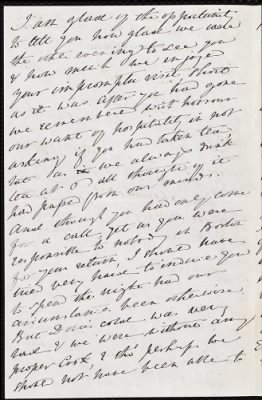 I am glad of the opportunity
to tell you how glad we were
the other evening to see you
& how much we enjoyed
your impromptu visit short
as it was. After you had gone
we remembered with horror
our want of hospitality in not
asking if you had taken tea
but as we always drink
tea at 5 all thought of it
had passed from our minds.
And though you had only come
for a call, yet as you were
responsible to nobody in Boston
for your return, I should have
tried very hard to induce you
to spend the night had our
circumstances been otherwise
But Doras cold was very
hard & we were without any
proper Cook & tho' perhaps we
should not have been able to